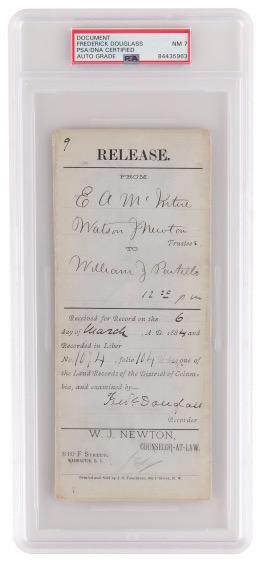 DOCUMENT
FREDERICK DOUGLASS NM 7
PSA/DNA CERTIFIED
AUTO GRADE PSA 84435963
9
RELEASE.
FROM
E A McIntire
Watson J Newton
Trustees
TO
William J
12 20 p m
Received for Record on the 6
day of March A. D. 1884 and
Recorded in Liber
No. 1074, folio 104 one of
the Land Records of the District of Colum-
bia, and examined by
Fredk Douglass
Recorder
W. J. NEWTON,
COUNSELOR-AT-LAW.
F STREET,
WASHINGTON, D. C.
Printed and Sold by